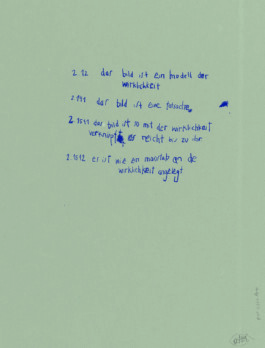 2.12 das bild ist ein modell der
wirklichkeit
2.141 das bild ist eine tatsache
2.1511 das bild ist so mit der wirklichkeit
verknüpft er reicht bis zu ihr
2.1512 er ist wie ein maostab an die
wirklichkeit angelegt